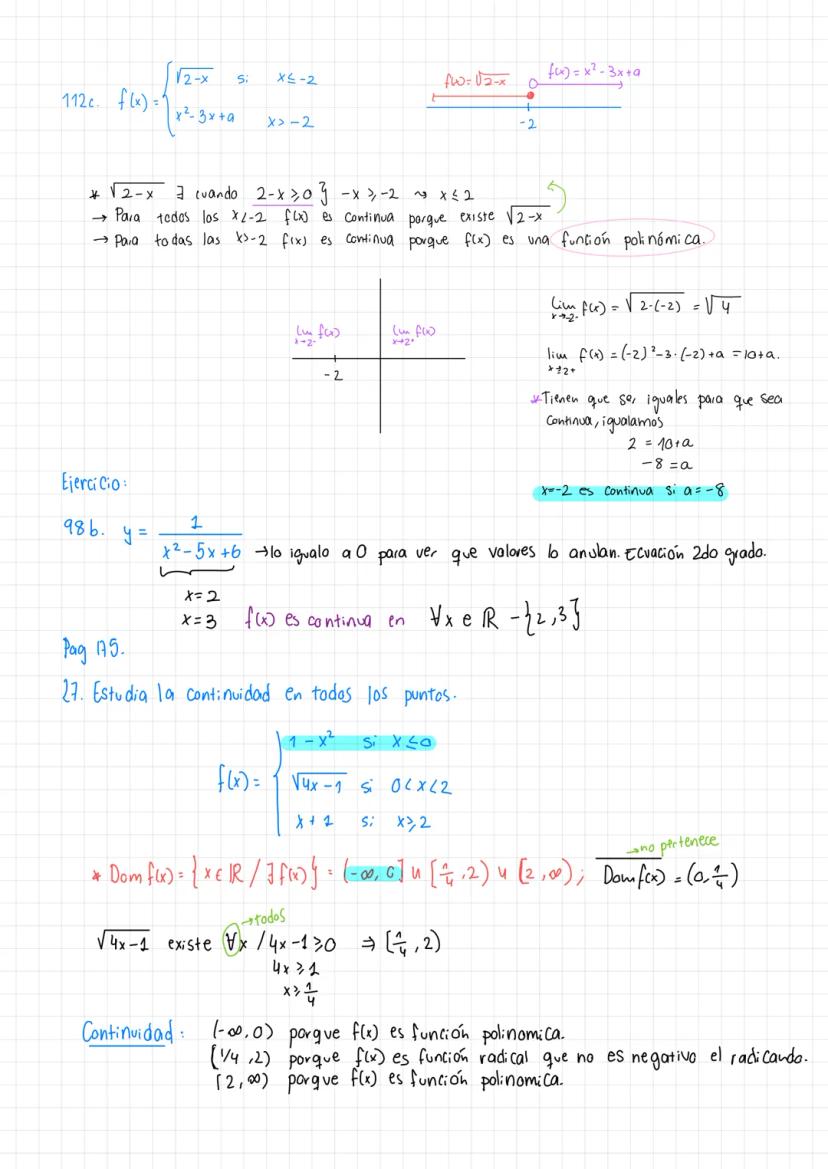 112c. f(x) = { √2-x si x ≤ -2
x² - 3x + a x > -2
f(x) = √2-x
f(x) = x² - 3x + a
-2
* √2-x ∃ cuando 2-x ≥ 0 } -x ≥ -2 ⇝ x ≤ 2
→ Para todos los x<-2 f(x) es continua porque existe √2-x
→ Para todas las x>-2 f(x) es continua porque f(x) es una función polinómica.
lim f(x)
x→2-
lim f(x)
x→2+
-2
lim f(x) = √2-(-2) = √4
x→-2-
lim f(x) = (-2)² - 3·(-2) + a = 10+a.
x→2+
*Tienen que ser iguales para que sea
continua, igualamos
2 = 10+a
-8 = a
x=-2 es continua si a = -8
Ejercicio:
98b. y = 1 / x² - 5x + 6 → lo igualo a 0 para ver que valores lo anulan. Ecuación 2do grado.
x = 2
x = 3 f(x) es continua en ∀x e ℝ - {2,3}
Pag 175.
27. Estudia la continuidad en todos los puntos.
f(x) = { 1 - x² si x ≤ 0
√4x-1 si 0 < x < 2
x + 1 si x ≥ 2
→no pertenece
* Dom f(x) = { x ∈ ℝ / ∃ f(x) } = (-∞, 0] u [1/4, 2) u [2, ∞) ; Dom f(x) = (0, 1/4)
→todos
√4x-1 existe ∀x / 4x-1 ≥ 0 ⇒ [1/4, 2)
4x ≥ 1
x ≥ 1/4
Continuidad: (-∞, 0) porque f(x) es función polinomica.
(1/4, 2) porque f(x) es función radical que no es negativo el radicando.
[2, ∞) porque f(x) es función polinomica.